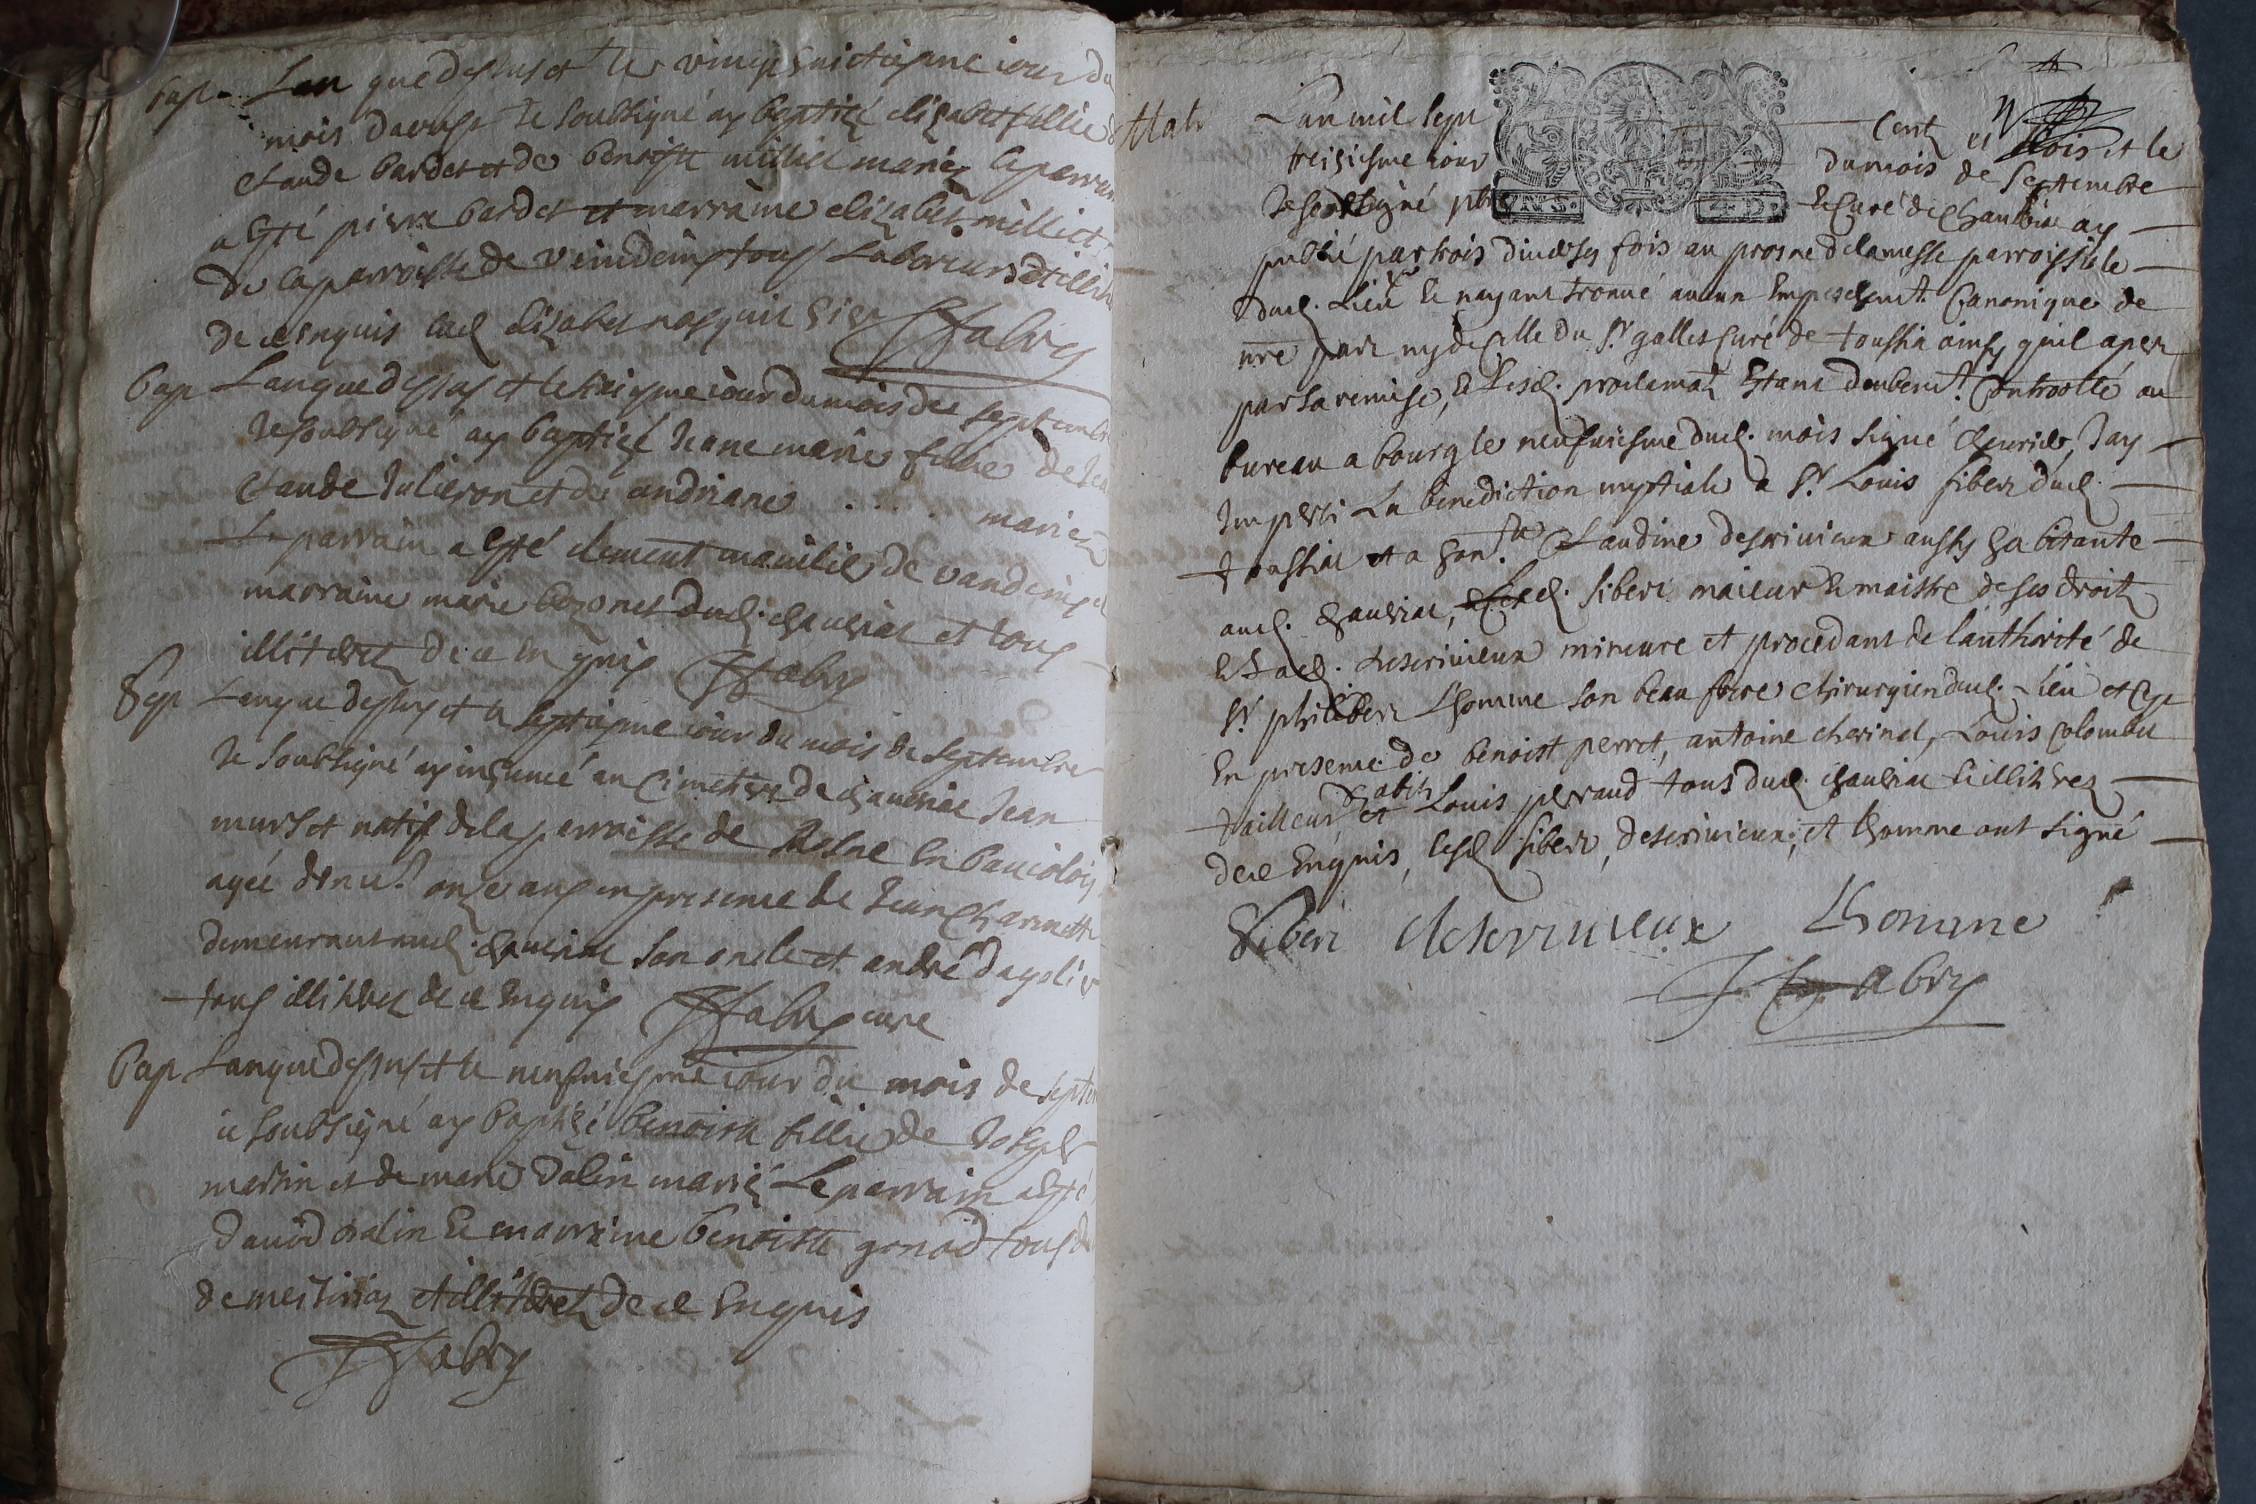 bap. Lan que dessus et le vingt huictiesme iour du
mois daoust Je soubsigné ay baptizé elizabet fillie de
claude bardet et de benoiste milliet mariez le parrain
a esté pierre bardet et marraine elizabet milliet
de la parroisse de vendeins tous laboureurs et illit
de ce enquis lad elizabet nasquit hier JFabry
bap Lan que dessus et le troisiesme iour du mois de septembre
Je soubsigné ay baptizé Jeane marie fillie de Jean
claude Julieron et de andriane . . . . mariez
Le parrain a esté clement manilier de vandeins et
marraine marie bozonet dud. chaveiriac et tous
illiterez de ce enquis JFabry
Sep Lan que dessus et le septiesme iour du mois de septembre
Je soubsigné ay inhumé au cimetiere de chaveiriac Jean
murs et natif de la parroisse de en baujolois
agée denv.t onze ans en presence de Jean Charnette
demeurant aud. chaveiriac son oncle et andré dagoli
tous illiterez de ce enquis JFabry curé
bap Lan que dessus et le neufuiesme iour du mois de septem
ie soubsigné ay baptizé benoiste fillie de Joseph
martin et de marie dalin mariez Le parrain a esté
dauid dalin et marraine benoiste gonod tous
de meisiriaz et illiterez de ce enquis
JFabry
Mar Lan mil sept cent et trois et le
treisiesme iour du mois de Septembre
Je soubsigné ptre et curé de chaveiriac ay
publié par trois diverses fois au prosne de la messe parroissiale
dud. Lieu et nayant trouué aucun Empeschem.t Canonique de
nre part ny de celle du Sr galles curé de toussia ainsy quil apert
par sa remise, et lesd. proclamaõn Estant deubem.t Controollé au
bureau a bourg le neufuiesme dud. mois signé cheurier, Jay
Imparti La benediction nuptiale a Sr. Louis siberz dud.
toussia et a hon.te Claudine descriuieux aussy habitante
aud. chaveiriac, Led. siberz maieur et maistre de ses droitz
et Lad. descriuieux mineure et procedant de lauthorité de
Sr philibert Lhomme son beau frere chirurgien dud. Lieu et ce
En presence de benoist perret, antoine cherinel, Louis colombet
tailleur dhabitz et Louis perraud tous dud. chaveiriac et illitérez
de ce Enquis, lesd siberz, descriuieux, et Lhomme ont signé
Siberz descrivieux Lhomme
JFabry